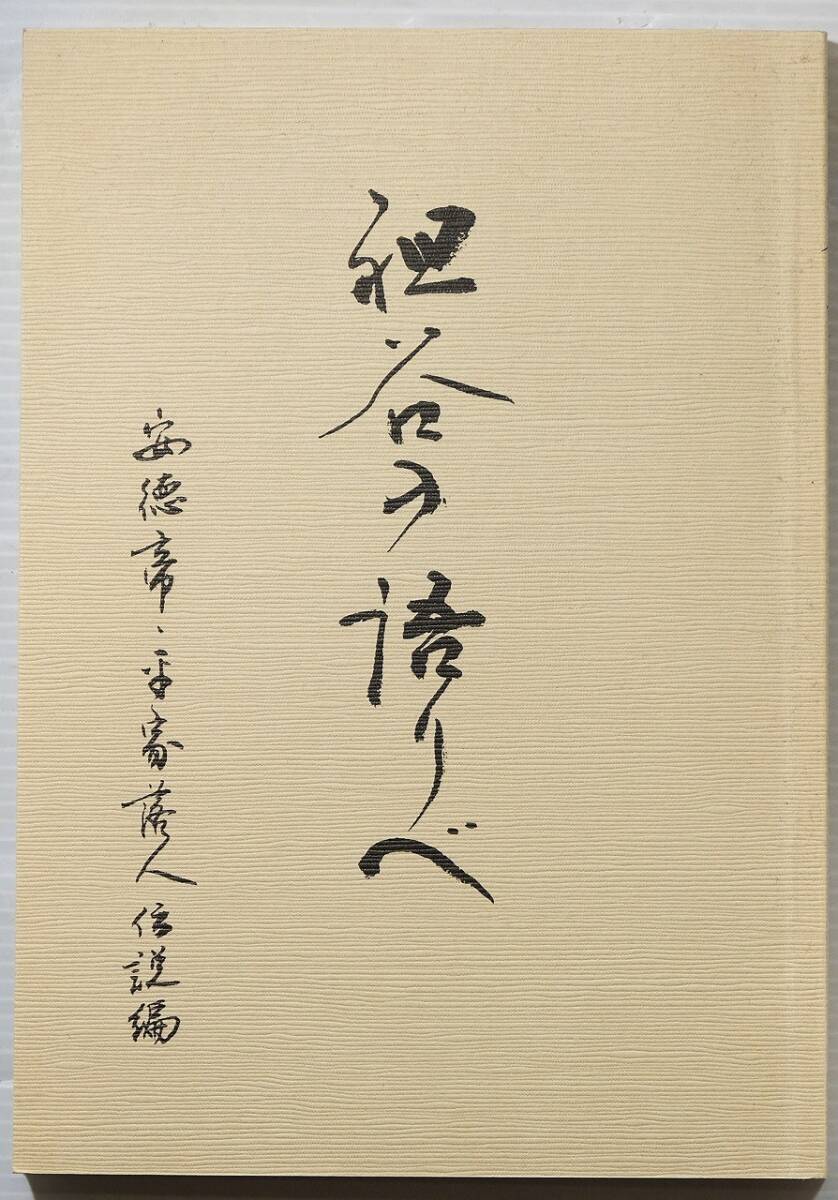 祖谷の語りべ
安徳帝、平家落人伝説編